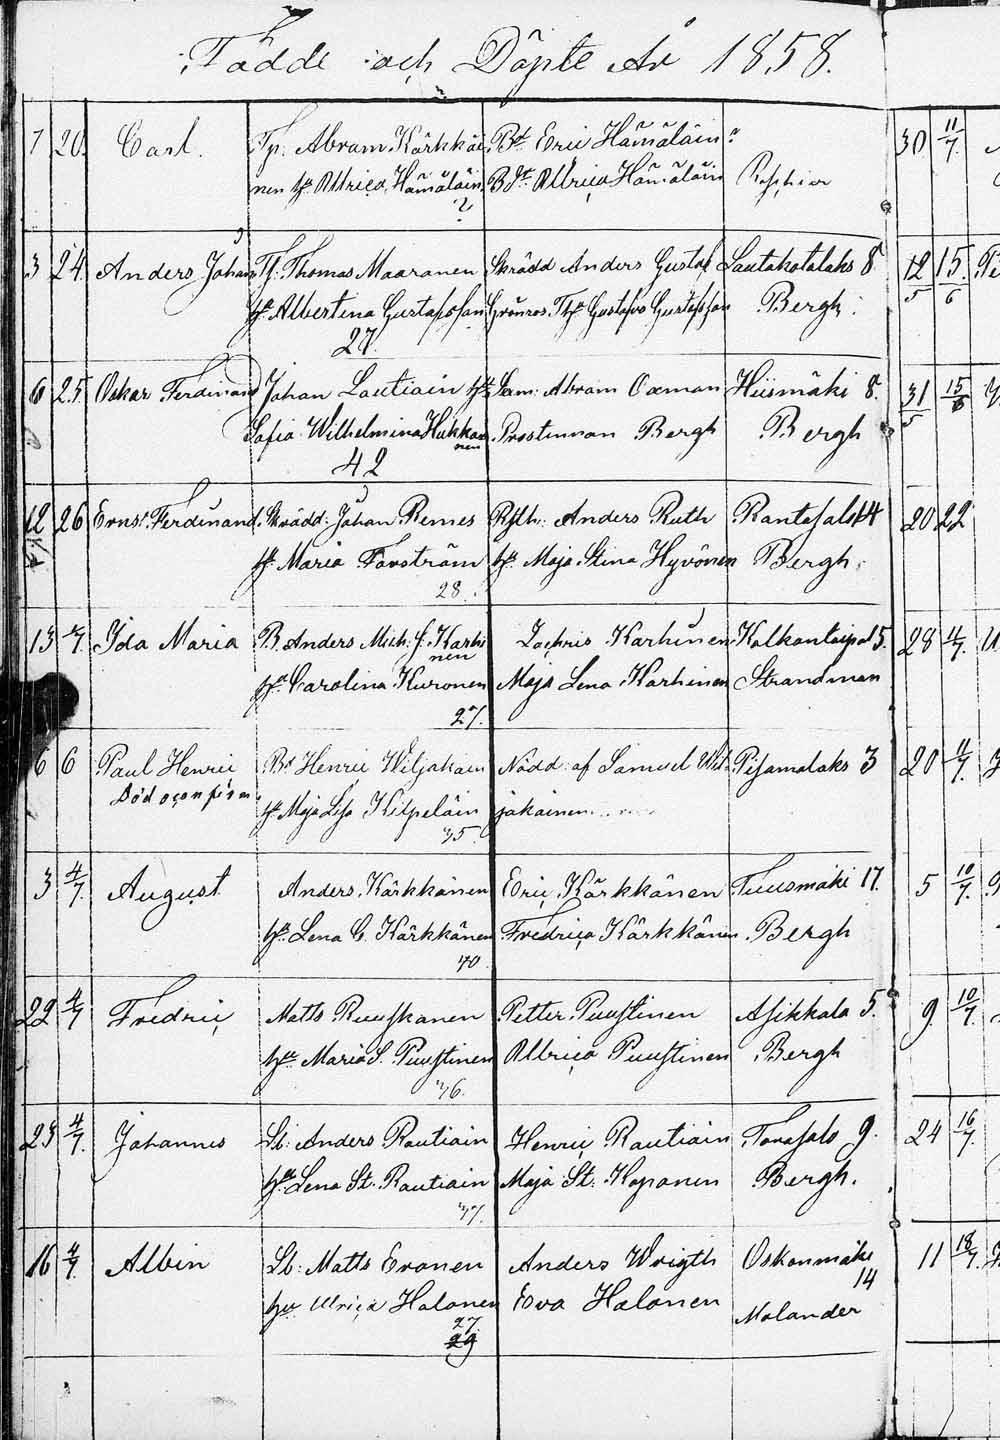 Födde och Döpte År 1858.
7 20. Carl. Tp. Abram Kärkkäi Bd Eric Hämäläin
nen h. Ulrica Hämäläin Bdr Ulrica Hämäläin
3 24. Anders Johan Tf. Thomas Maaranen Skrädd Anders Gustaf Lautakotalaks 8
h. Albertina Gustafsson Grönros. Gustafva Gustafsson Bergh.
27.
6 25 Oskar Ferdinand Johan Lautiain h. Abram Oxman Hiismäki 8.
Sofia Wilhelmina Hukka Prostinnan Bergh Bergh
nen
42
12 26 Ernst Ferdinand. Skrädd: Johan Remes Anders Ruth Rantasalo 14
h. Maria Forsström h. Maja Stina Hyvönen Bergh.
28.
13 Ida Maria B. Anders Mich: f. Karhi Zachris Karhinen Kalkontaipal 5.
nen
h. Carolina Kuronen Maja Lena Karhinen Strandman
27.
6 6 Paul Henric Bd Henric Wiljakain Nödd: af Samuel Wil Pisamalaks 3
Död h. Maja Lisa Kilpeläin jakainen
35.
3 4/7. August Anders Kärkkänen Eric Kärkkänen Tuusmäki 17.
h. Lena C. Kärkkänen Fredrica Kärkkänen Bergh
40
22 4/7 Fredric Matts Ruuskanen Petter Puustinen Asikkala 5.
h. Maria S. Puustinen Ulrica Puustinen Bergh
36.
23 4/7. Johannes Lb. Anders Rautiain Henric Rautiain Torasalo 9.
h. Lena St. Rautiain Maja St. Koponen Bergh.
37.
16 4/7. Albin Lb: Matts Eronen Anders Wrigth Oskanmäki
14
h. Ulrica Halonen Eva Halonen Molander
27.
29
30 11/7.
12/5 15/6
31/5 15/6
20 22
28 4/7.
20 4/7.
5 10/7.
9. 10/7.
24 16/7.
11 18/7.